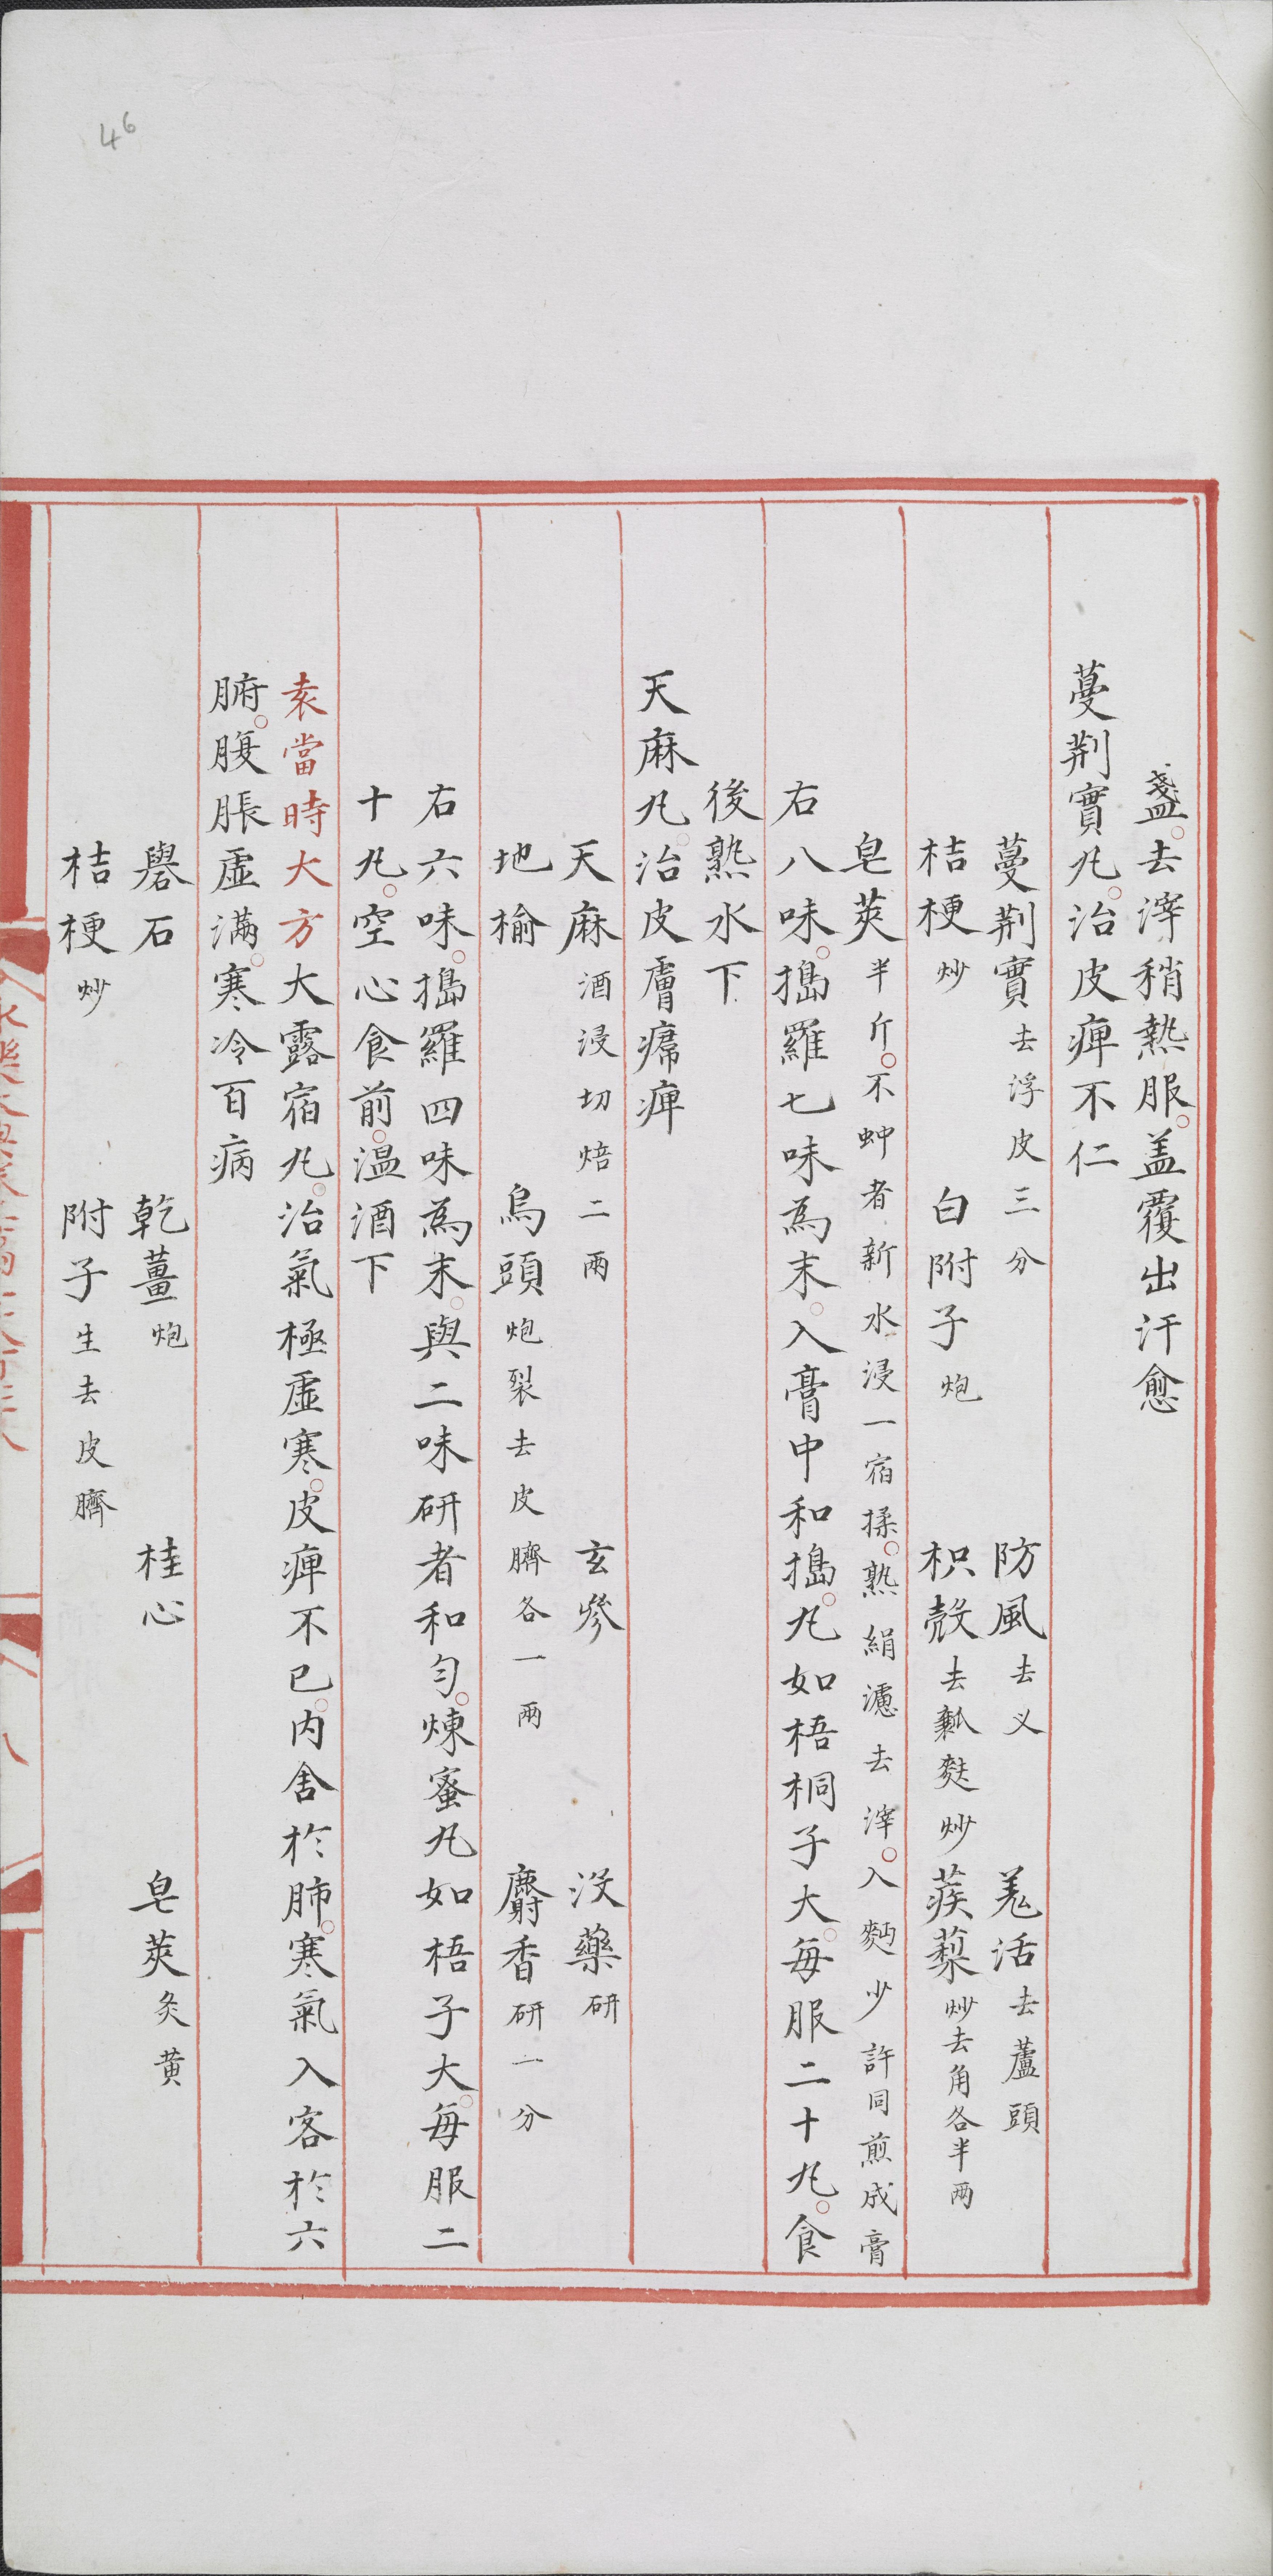 46
盞去滓稍熱服盖覆出汗愈
蔓荆實丸治皮痺不仁
蔓荆實去浮皮三分 防風去义 羗活去蘆頭
桔梗炒 白附子炮 枳殻去瓤麩炒 蒺蔾炒去角各半两
皂莢半斤不蚛者新水浸一宿揉熟絹濾去滓入麫少許同煎成膏
右八味搗羅七味為末入膏中和搗丸如梧桐子大每服二十丸食
後熟水下
天麻丸治皮膚𤸷痺
天麻酒浸切焙二兩 玄參 沒藥研
地榆 烏頭炮裂去皮臍各一兩 麝香研一分
右六味搗羅四味為末與二味研者和匀煉蜜丸如梧子大每服二
十丸空心食前温酒下
袁當時大方大露宿丸治氣極虛寒皮痺不已内舍於肺寒氣入客於六
腑腹脹虛滿寒冷百病
礜石 乾薑炮 桂心 皂莢炙黄
桔梗炒 附子生去皮臍
八